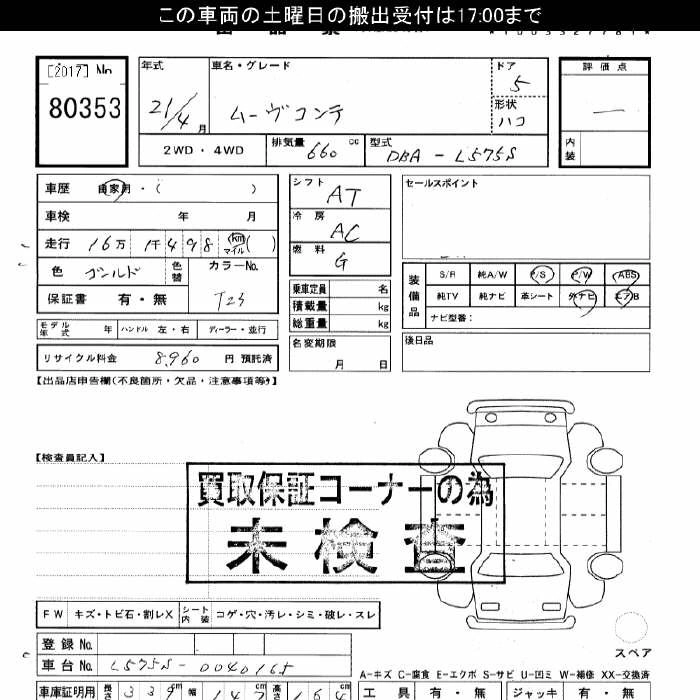 この車両の土曜日の搬出受付は17:00まで
[2017] No
80353
年式
21/4 月
車名・グレード
ムーヴコンテ
ドア
5
形状
ハコ
評価点
—
内装
2WD・4WD
排気量 660 cc
型式 DBA - L575S
車歴 自家用・( )
車検 年 月
走行 16万 1千498 km マイル ( )
色 ゴールド 色替
カラーNo. T23
保証書 有・無
モデル年式 年 ハンドル 左・右 ディーラー・並行
リサイクル料金 8,960 円 預託済
シフト AT
冷房 AC
燃料 G
乗車定員 名
積載量 kg
総重量 kg
名変期限 月 日
セールスポイント
装備品
S/R 純A/W P/S P/W ABS
純TV 純ナビ 革シート 外ナビ エアB
ナビ型番:
後日品
【出品店申告欄(不良箇所・欠品・注意事項等)】
【検査員記入】
買取保証コーナーの為
未検査
FW キズ・トビ石・割レX シート内装 コゲ・穴・汚レ・シミ・破レ・スレ
スペア
登録No.
車台No. L575S-0040165
A-キズ C-腐食 E-エクボ S-サビ U-凹ミ W-補修 XX-交換済
車庫証明用 長さ 339cm 幅 147 高さ 164
工具 有・無 ジャッキ 有・無